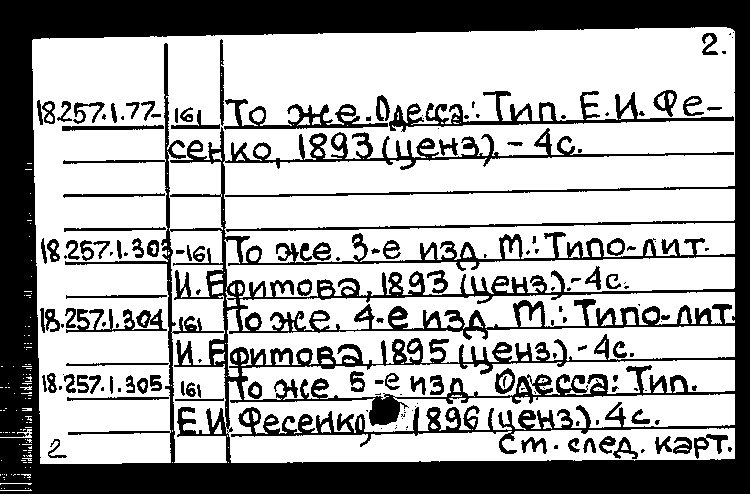 2.
18.257.1.77- 161 То же. Одесса: Тип. Е.И. Фе-
сенко, 1893 (ценз.). - 4с.
18.257.1.303 -161 То же. 3-е изд. М.: Типо-лит.
И. Ефитова, 1893 (ценз.).-4с.
18.257.1.304 -161 То же. 4-е изд. М.: Типо-лит.
И. Ефитова, 1895 (ценз.).-4с.
18.257.1.305- 161 То же. 5-е изд. Одесса: Тип.
Е.И. Фесенко, 1896 (ценз.). 4с.
2 См. след. карт.